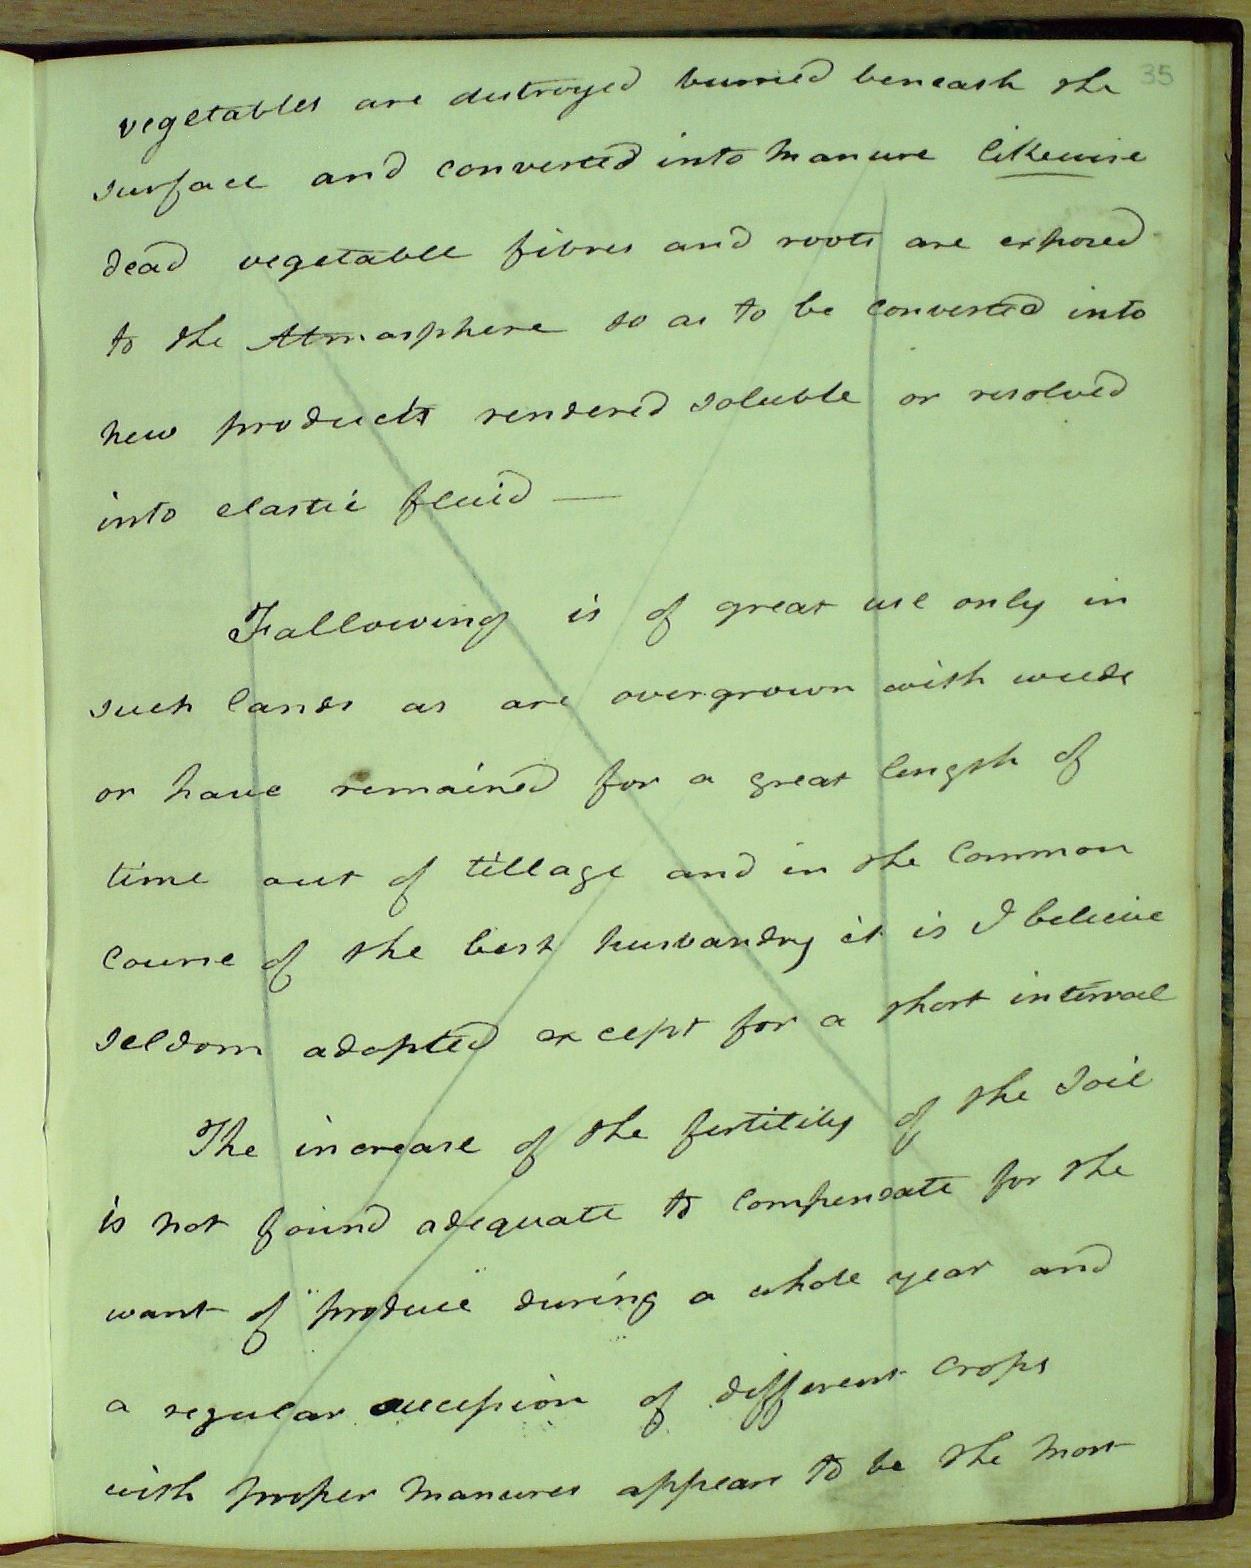 35
vegetables are destroyed burried beneath the
surface and converted into manure likewise
dead vegetable fibres and roots are exposed
to the Atmosphere so as to be converted into
new products rendered soluble or resolved
into elastic fluid —
Fallowing is of great use only in
such lands as are overgrown with weeds
or have remained for a great length of
time out of tillage and in the Common
course of the best husbandry it is I believe
seldom adopted except for a short interval
The increase of the fertility of the soil
is not found adequate to compensate for the
want of produce during a whole year and
a regular of different crops
with proper manures appears to be the most